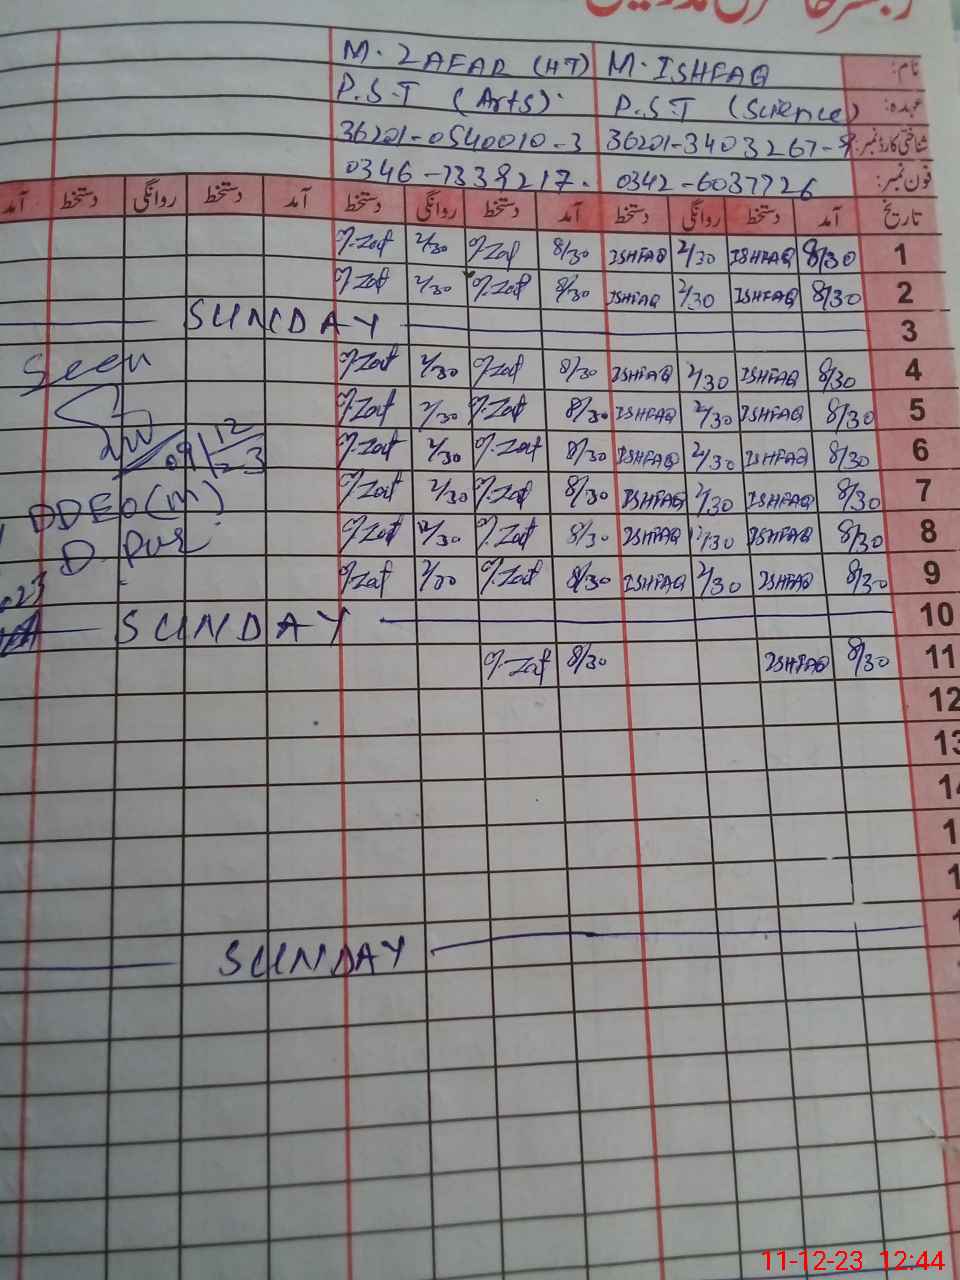 رجسٹر حاضری مدرسین
نام: M. ISHFAQ M. ZAFAR (HT)
عہدہ: P.S.T (Science) P.S.T (Arts).
شناختی کارڈ نمبر: 36201-3403267- 36201-0540010-3
فون نمبر: 0342-6037726 0346-7339217.
تاریخ آمد دستخط روانگی دستخط آمد دستخط روانگی دستخط آمد دستخط روانگی دستخط آمد
1 8/30 ISHFAQ 2/30 ISHFAQ 8/30 2/30
2 8/30 ISHFAQ 2/30 ISHFAQ 8/30 2/30
3 SUNDAY
4 8/30 ISHFAQ 2/30 ISHFAQ 8/30 2/30
Seen
5 8/30 ISHFAQ 2/30 ISHFAQ 8/30 2/30
6 8/30 ISHFAQ 2/30 ISHFAQ 8/30 2/30
09/12/23
7 8/30 ISHFAQ 2/30 ISHFAQ 8/30 2/30
DDEO(M)
8 8/30 ISHFAQ 12/30 ISHFAQ 8/30 12/30
D. pur
9 8/30 ISHFAQ 2/30 ISHFAQ 8/30
23
10 SUNDAY
11 8/30 ISHFAQ 8/30
12
13
14
1
1
SUNDAY
11-12-23 12:44